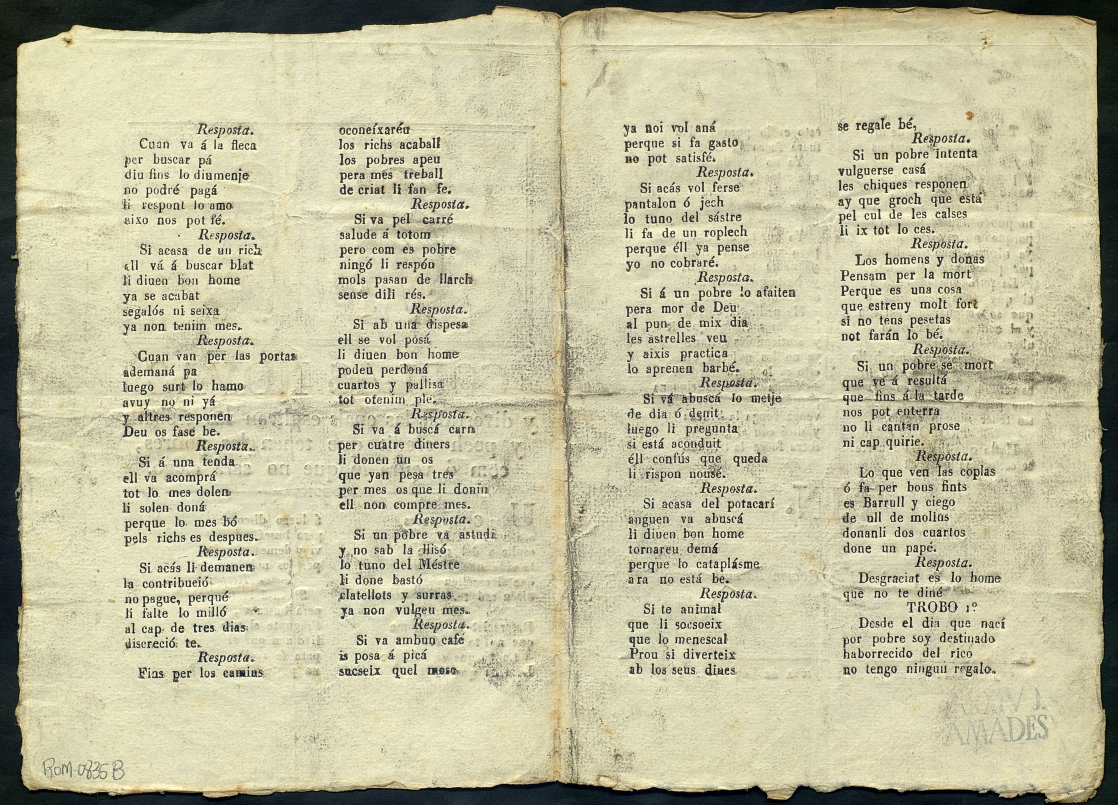 Resposta.
Cuan va á la fleca
per buscar pá
diu fins lo diumenje
no podré pagá
li respont lo amo
aixo nos pot fé.
Resposta.
Si acasa de un rich
ell vá á buscar blat
li diuen bon home
ya se acabat
segalós ni seixa
ya non tenim mes.
Resposta.
Cuan van per las portas
ademaná pa
luego surt lo hamo
avuy no ni yá
y altres responen
Deu os fase be.
Resposta.
Si á una tenda
ell va acomprá
tot lo mes dolen
li solen doná
perque lo mes bó
pels richs es despues.
Resposta.
Si acás li demanen
la contribueió
no pague, perqué
li falte lo milló
al cap de tres dias
discreció te.
Resposta.
Fins per los camins
oconeíxaréu
los richs acaball
los pobres apeu
pera mes treball
de criat li fan fe.
Resposta.
Si va pel carré
salude á totom
pero com es pobre
ningó li respón
mols pasan de llarch
sense dili rés.
Resposta.
Si ab una dispesa
ell se vol posá
li diuen bon home
podeu perdoná
cuartos y pallisa
tot ofenim ple.
Resposta.
Si va á buscá carn
per cuatre diners
li donen un os
que yan pesa tres
per mes os que li donin
ell non compre mes.
Resposta.
Si un pobre va astudi
y no sab la llisó
lo tuno del Méstre
li done bastó
clatellots y surras
ya non vulgeu mes.
Resposta.
Si va ambun café
is posa á picá
sucseix quel moso
ya noi vol aná
perque si fa gasto
no pot satisfé.
Resposta.
Si acás vol ferse
pantalon ó jech
lo tuno del sástre
li fa de un roplech
perque éll ya pense
yo no cobraré.
Resposta.
Si á un pobre lo afaiten
pera mor de Deu
al pun de mix dia
les astrelles veu
y aixis practica
lo aprenen barbé.
Resposta.
Si vá abuscá lo metje
de dia ó denit
luego li pregunta
si está aconduit
éll confús que queda
li rispon nousé.
Resposta.
Si acasa del potacarí
anguen va abuscá
li diuen bon home
tornareu demá
perque lo cataplásme
ara no está be.
Resposta.
Si te animal
que li socsoeix
que lo menescal
Prou si diverteix
ab los seus dines
se regale bé,
Resposta.
Si un pobre intenta
vulguerse casá
les chiques responen
ay que groch que está
pel cul de les calses
li ix tot lo ces.
Resposta.
Los homens y donas
Pensam per la mort
Perque es una cosa
que estreny molt fort
si no tens pesetas
not farán lo bé.
Resposta.
Si un pobre se mort
que ve á resultá
que fins á la tarde
nos pot enterra
no li cantan prose
ni cap quirie.
Resposta.
Lo que ven las coplas
ó fa per bous fints
es Barrull y ciego
de ull de molins
donanli dos cuartos
done un papé.
Resposta.
Desgraciat es lo home
que no te diné
TROBO 1º
Desde el dia que nací
por pobre soy destinado
haborrecido del rico
no tengo ningun regalo.
ARXIV J.
AMADES
ROM-0835B